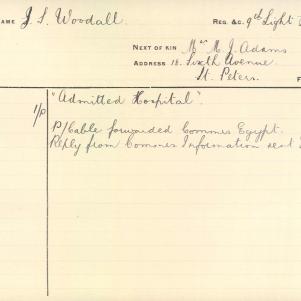 NAME J. S. Woodall. REG. &C. 9th Light
NEXT OF KIN Mrs M. J. Adams
ADDRESS 18. Sixth Avenue
St. Peters.
"Admitted Hospital".
P/Cable forwarded Commrs Egypt.
Reply from Commrs Information sent